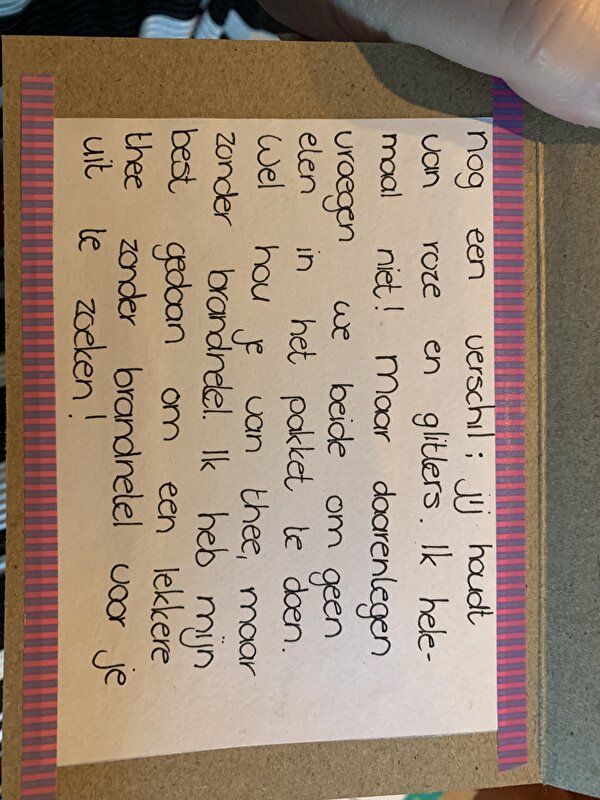 nog een verschil: jij houdt
van roze en glitters. Ik hele-
maal niet! Maar daarentegen
vroegen we beide om geen
eten in het pakket te doen.
Wel hou je van thee, maar
zonder brandnetel. Ik heb mijn
best gedaan om een lekkere
thee zonder brandnetel voor je
uit te zoeken!